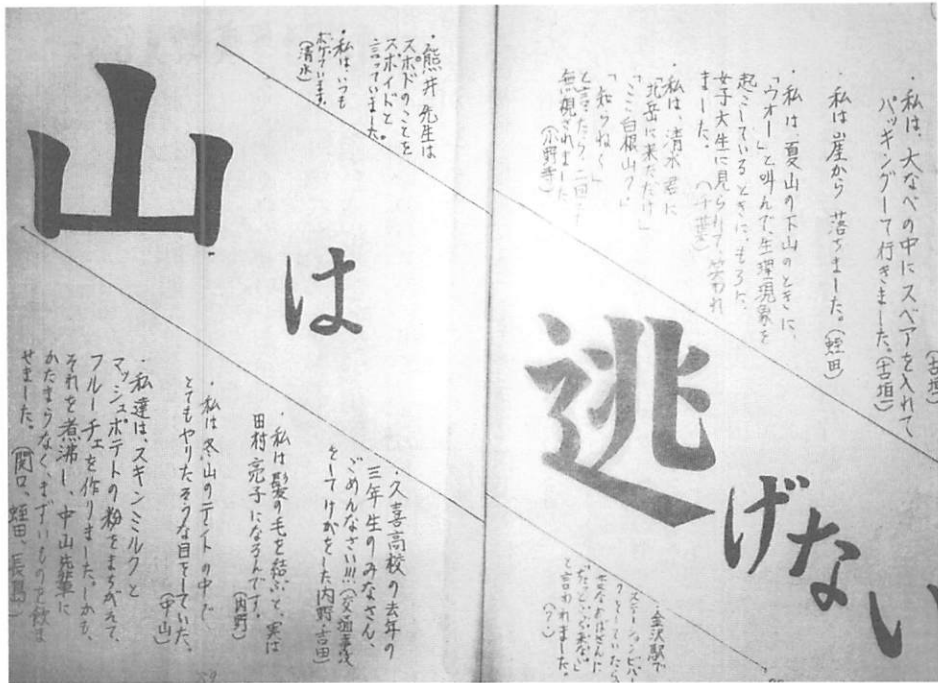 山は
逃げない
(古垣)
・私は、大なべの中にスペアを入れて
パッキングして行きました。(古垣)
・私は崖から落ちました。(蛭田)
・私は、夏山の下山のときに、
「ウオー」と叫んで、生理現象を
起こしているときに、もろに、
女子大生に見られて、笑われ
ました。(千葉)
・私は、清水君に
「北岳に来ただけ」
「ここ白根山?」
無視されました
(小野寺)
・熊井先生は
スポドのことを
スポイドと
言っていました。
・私は、いつも
ボケています。
(清水)
・金沢駅で
と言われました。
・久喜高校の去年の
三年生のみなさん、
ごめんなさい!!!(交通事故
をしてけがをした内野・吉田)
・私は髪の毛を結ぶと、実は
田村亮子になるんです。
(内野)
・私は冬山のテントの中で
とてもヤリたそうな目をしていた。
(中山)
・私達は、スキンミルクと
マッシュポテトの粉をまちがえて、
フルーチェを作りました。しかも、
それを煮沸し、中山先輩に
かたまらなく、まずいものを飲ま
せました。(関口、蛭田、長島)